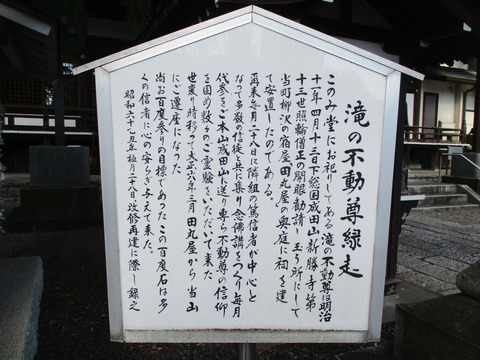 滝の不動尊縁起
このみ堂にお祀りしてある滝の不動尊は明治
十一年四月十三日下総国成田山新勝寺第
十三世照輪僧正の開眼勧請 玉う所にして
当町柳沢の宿屋田丸屋の奥庭に祠を建
て安置したのである。
再来毎月二十八日に隣組の篤信者が中心と
なって多数の信徒と共に集り念佛講をつくり毎月
代参をご本山成田山に送り専ら不動尊の信仰
を固め数々のご霊験をいただいて来た
世変り時移って大正六年三月田丸屋から当山
にご遷座になった
尚お百度参りの目標であったこの百度石は多
くの信者に心の安らぎを与えて来た。
昭和六十乙丑年極月二十八日改修再建に際し録之